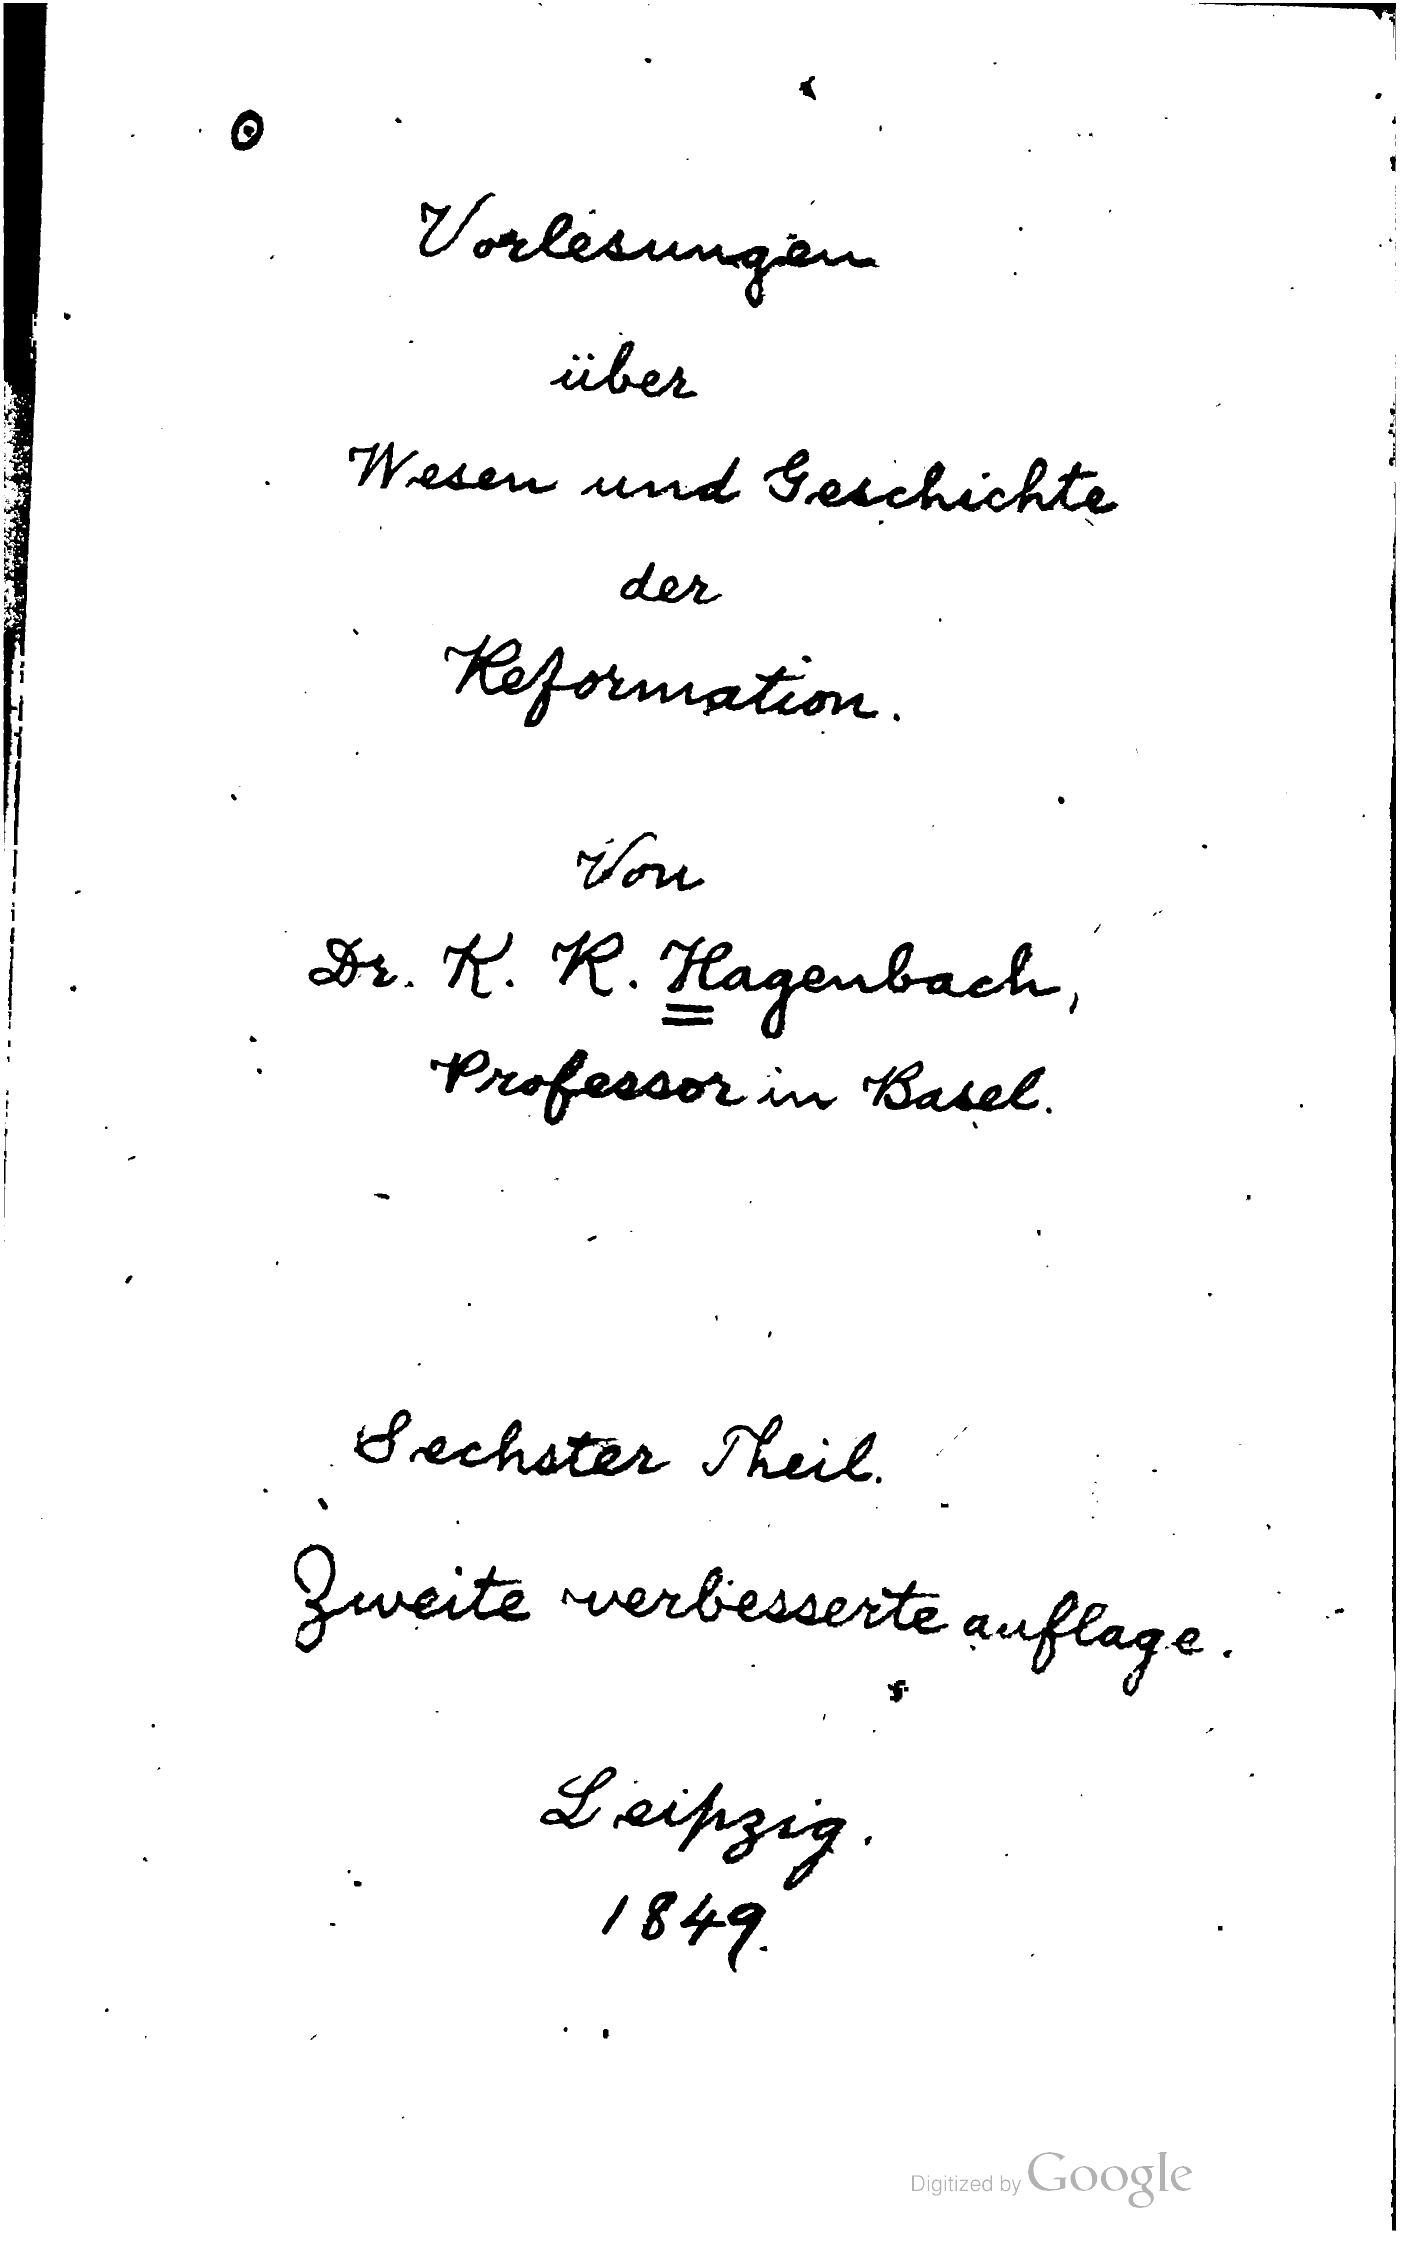 Vorlesungen
über
Wesen und Geschichte
der
Reformation.
Von
Dr. K. R. Hagenbach,
Professor in Basel.
Sechster Theil.
Zweite verbesserte auflage.
Leipzig.
1849.
Digitized by Google